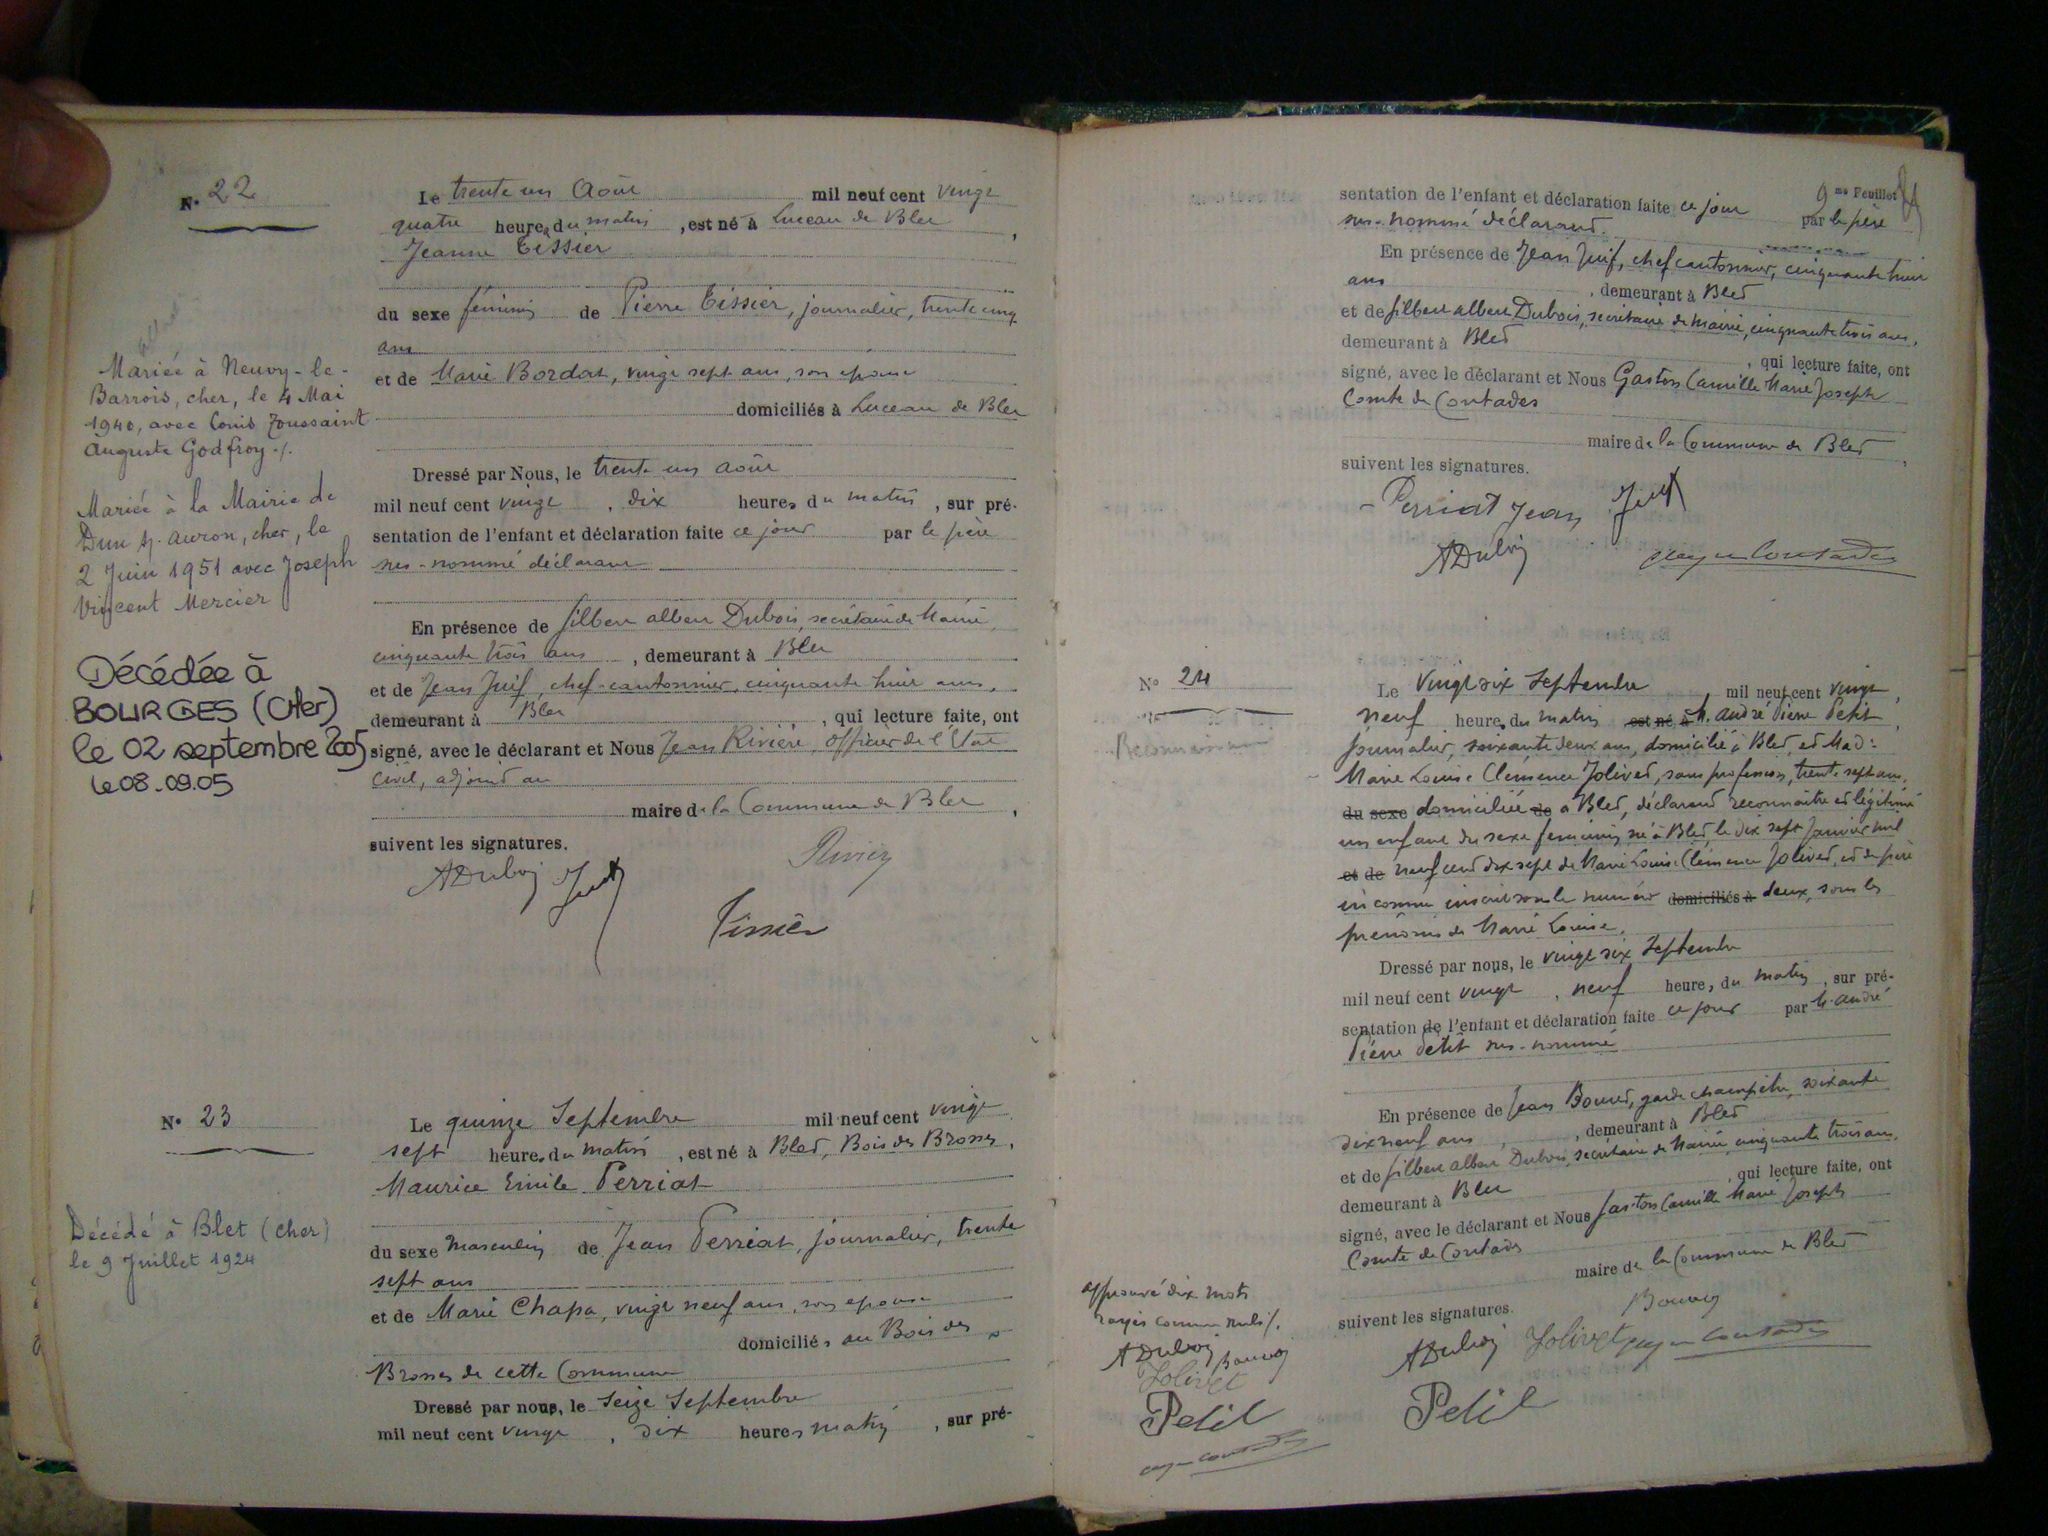 N° 22
Le trente un Août mil neuf cent vingt
quatre heures du matin, est né à Luceau de Blet,
Jeanne Tissier
du sexe féminin de Pierre Tissier, journalier, trente cinq
ans
et de Marie Bordat, vingt sept ans, son épouse
domiciliés à Luceau de Blet
Dressé par Nous, le trente un août
mil neuf cent vingt, dix heures du matin, sur pré-
sentation de l'enfant et déclaration faite ce jour par le père
sus-nommé déclarant
En présence de Gilbert albert Dubois, secrétaire de Mairie,
cinquante trois ans, demeurant à Blet
et de Jean Juif, chef-cantonnier, cinquante huit ans,
demeurant à Blet, qui lecture faite, ont
signé, avec le déclarant et Nous Jean Rivière, officier de l'Etat
Civil, adjoint au
maire de la Commune de Blet,
suivent les signatures.
ADubois Juif
Tissier
Mariée à Neuvy-le-
Barrois, cher, le 4 Mai
1940, avec Louis Toussaint
Auguste Godfroy ./.
Mariée à la Mairie de
Dun s/. auron, cher, le
2 Juin 1951 avec Joseph
Vincent Mercier
Décédée à
BOURGES (CHer)
le 02 septembre 2005
le 08.09.05
N° 23
Le quinze Septembre mil neuf cent vingt
sept heures du matin, est né à Blet, Bois des Brosses,
Maurice Emile Perriat
du sexe masculin de Jean Perriat, journalier, trente
sept ans
et de Marie Chapa, vingt neuf ans, son épouse
domiciliés au Bois des
Brosses de cette Commune
Dressé par nous, le Seize Septembre
mil neuf cent vingt, dix heures matin, sur pré-
Décédé à Blet (cher)
le 9 Juillet 1924
9me Feuillet
sentation de l'enfant et déclaration faite ce jour par le père
sus-nommé déclarant.
En présence de Jean Juif, chef cantonnier, cinquante huit
ans, demeurant à Blet
et de Gilbert albert Dubois, secrétaire de Mairie, cinquante trois ans,
demeurant à Blet, qui lecture faite, ont
signé, avec le déclarant et Nous Gaston Camille Marie Joseph
Comte de Contades
maire de la Commune de Blet,
suivent les signatures.
Perriat Jean Juif
ADubois
N° 24
Le Vingt six Septembre mil neuf cent vingt,
neuf heures du matin est né à M. André Pierre Petit,
journalier, soixante deux ans, domicilié à Blet, et Mad:
Marie Louise Clémence Jolivet, sans profession, trente sept ans,
du sexe domiciliée de à Blet, déclarant reconnaître et légitimer
un enfant du sexe feminin né à Blet, le dix sept Janvier mil
et de neuf cent dix sept de Marie Louise Clémence Jolivet, et de père
inconnu inscrit sous le numéro domiciliés à deux, sous les
prénoms de Marie Louise.
Dressé par nous, le vingt six Septembre
mil neuf cent vingt, neuf heures du matin, sur pré-
sentation de l'enfant et déclaration faite ce jour par M. André
Pierre Petit sus-nommé
En présence de Jean Bouret, garde champêtre, soixante
dix neuf ans, demeurant à Blet
et de Gilbert albert Dubois, secrétaire de Mairie, cinquante trois ans,
demeurant à Blet, qui lecture faite, ont
signé, avec le déclarant et Nous Gaston Camille Marie Joseph
Comte de Contades
maire de la Commune de Blet
suivent les signatures.
ADubois Jolivet
Petit
approuvé dix mots
rayés comme nuls /.
ADubois
Jolivet
Petit